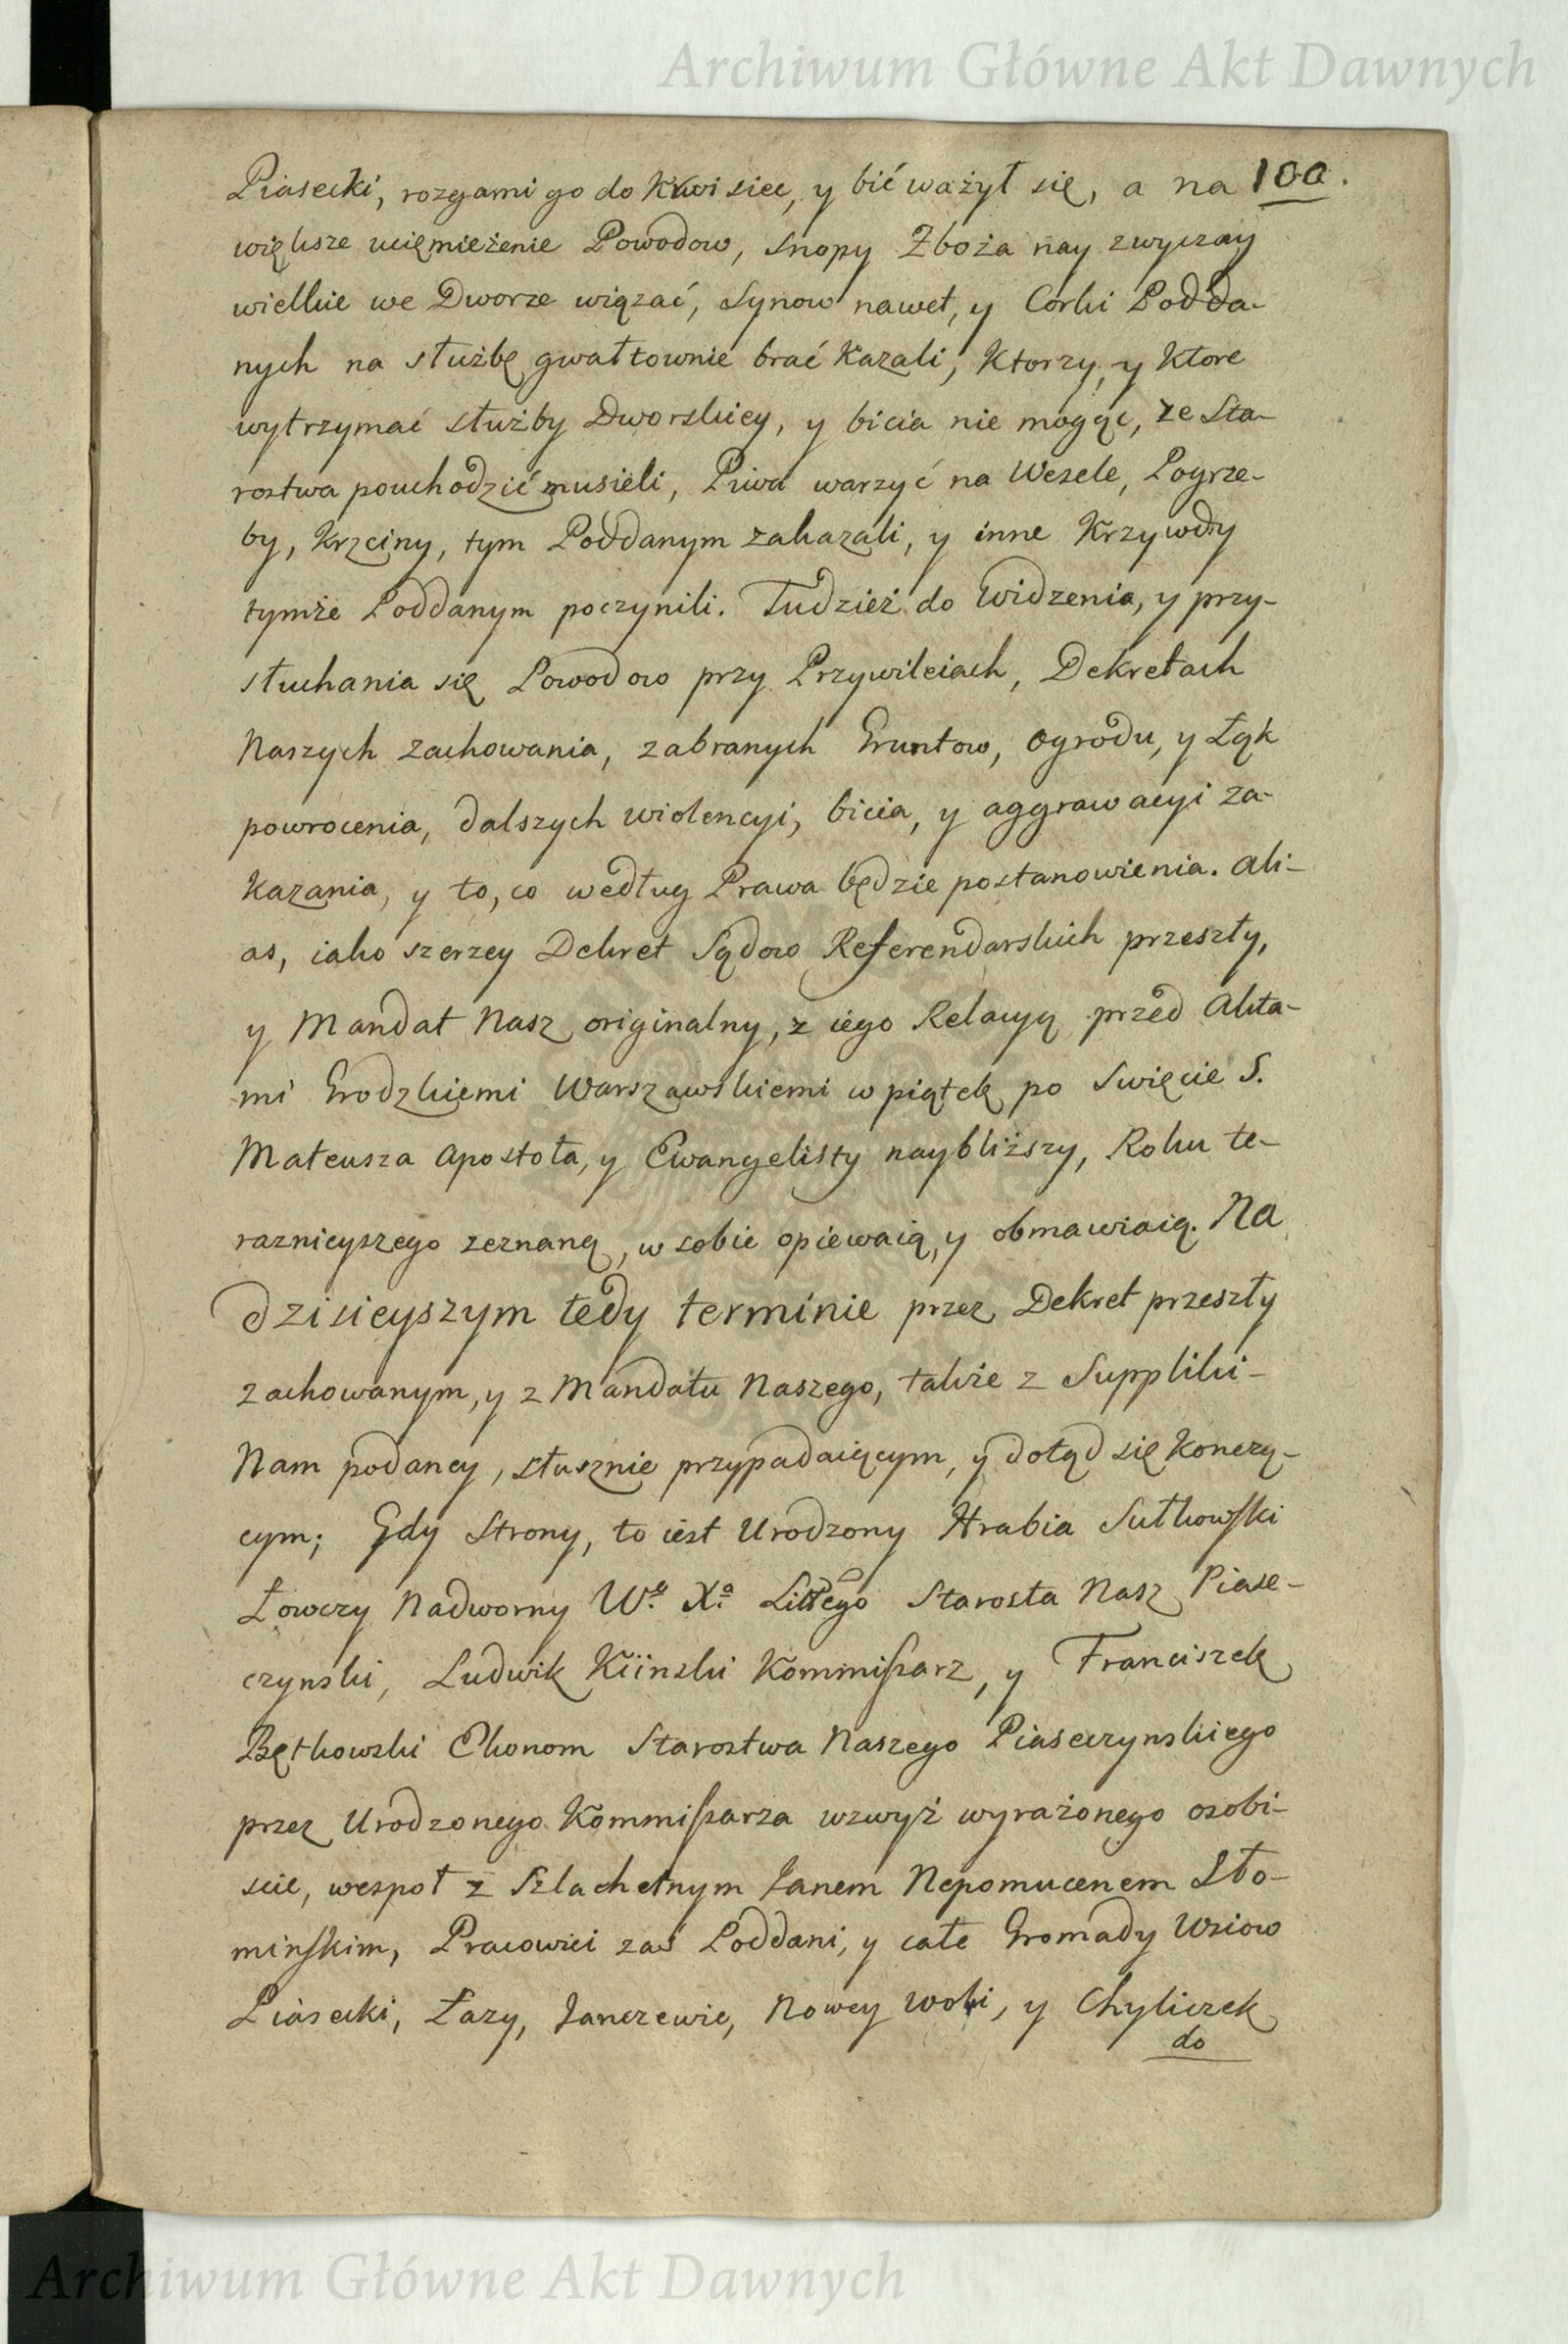 Archiwum Główne Akt Dawnych
100.
Piasecki, rozgami go do Krwi siec, y bić ważył się, a na
większe uciemieżenie Powodow, snopy Zboża nay zwyczay
wielkie we Dworze wiązać, Synow nawet, y Corki Podda-
nych na służbę gwałtownie brać Kazali, Ktorzy, y Ktore
wytrzymać służby Dworskiey, y bicia nie mogąc, ze Sta-
rostwa pouchodzić musieli, Piwa warzyć na Wesele, Pogrze-
by, Krzciny, tym Poddanym zakazali, y inne Krzywdy
tymże Poddanym poczynili. Tudzież do Widzenia, y przy-
słuchania się Powodow przy Przywileiach, Dekretach
Naszych zachowania, zabranych Gruntow, Ogrodu, y Łąk
powrocenia, dalszych wiolencyi, bicia, y aggrawacyi za-
Kazania, y to, co według Prawa będzie postanowienia. Ali-
as, iako szerzey Dekret Sądow Referendarskich przeszły,
y Mandat Nasz originalny, z iego Relacyą przed Akta-
mi Grodzkiemi Warszawskiemi w piątek po Swięcie S.
Mateusza Apostoła, y Ewangelisty naybliższy, Roku te-
raznieyszego zeznaną, w sobie opiewaią, y obmawiaią. Na
dzisieyszym tedy terminie przez Dekret przeszły
zachowanym, y z Mandatu Naszego, także z Suppliki-
Nam podaney, słusznie przypadaiącym, y dotąd się Konczą-
cym; Gdy Strony, to iest Urodzony Hrabia Sułkowski
Łowczy Nadworny W.º X.ª Littego Starosta Nasz Piase-
czynski, Ludwik Kiinski Kommissarz, y Franciszek
Bętkowski Ekonom Starostwa Naszego Piaseczynskiego
przez Urodzonego Kommissarza wzwyż wyrażonego osobi-
scie, wespoł z Szlachetnym Janem Nepomucenem Sło-
minskim, Pracowici zaś Poddani, y całe Gromady Wsiow
Piasecki, Łazy, Janczewic, Nowey Woli, y Chyliczek
do
Archiwum Główne Akt Dawnych